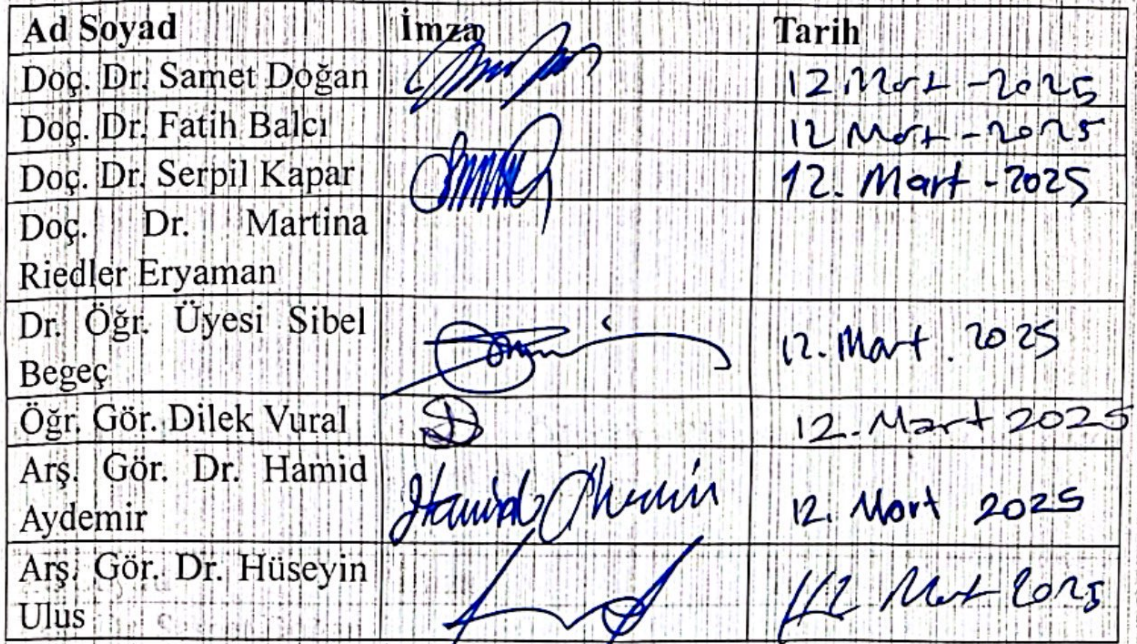 Ad Soyad İmza Tarih
Doç. Dr. Samet Doğan 12 Mart - 2025
Doç. Dr. Fatih Balcı 12 Mart - 2025
Doç. Dr. Serpil Kapar 12. Mart - 2025
Doç. Dr. Martina
Riedler Eryaman
Dr. Öğr. Üyesi Sibel
Begeç 12. Mart. 2025
Öğr. Gör. Dilek Vural 12. Mart 2025
Arş. Gör. Dr. Hamid
Aydemir 12. Mart 2025
Arş. Gör. Dr. Hüseyin
Ulus 12 Mart 2025